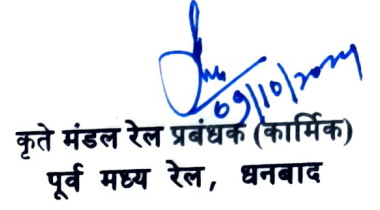 09/10/2024
कृते मंडल रेल प्रबंधक (कार्मिक)
पूर्व मध्य रेल, धनबाद